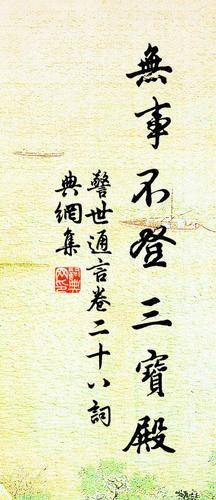 無事不登三寶殿
警世通言卷二十八詞
典網集